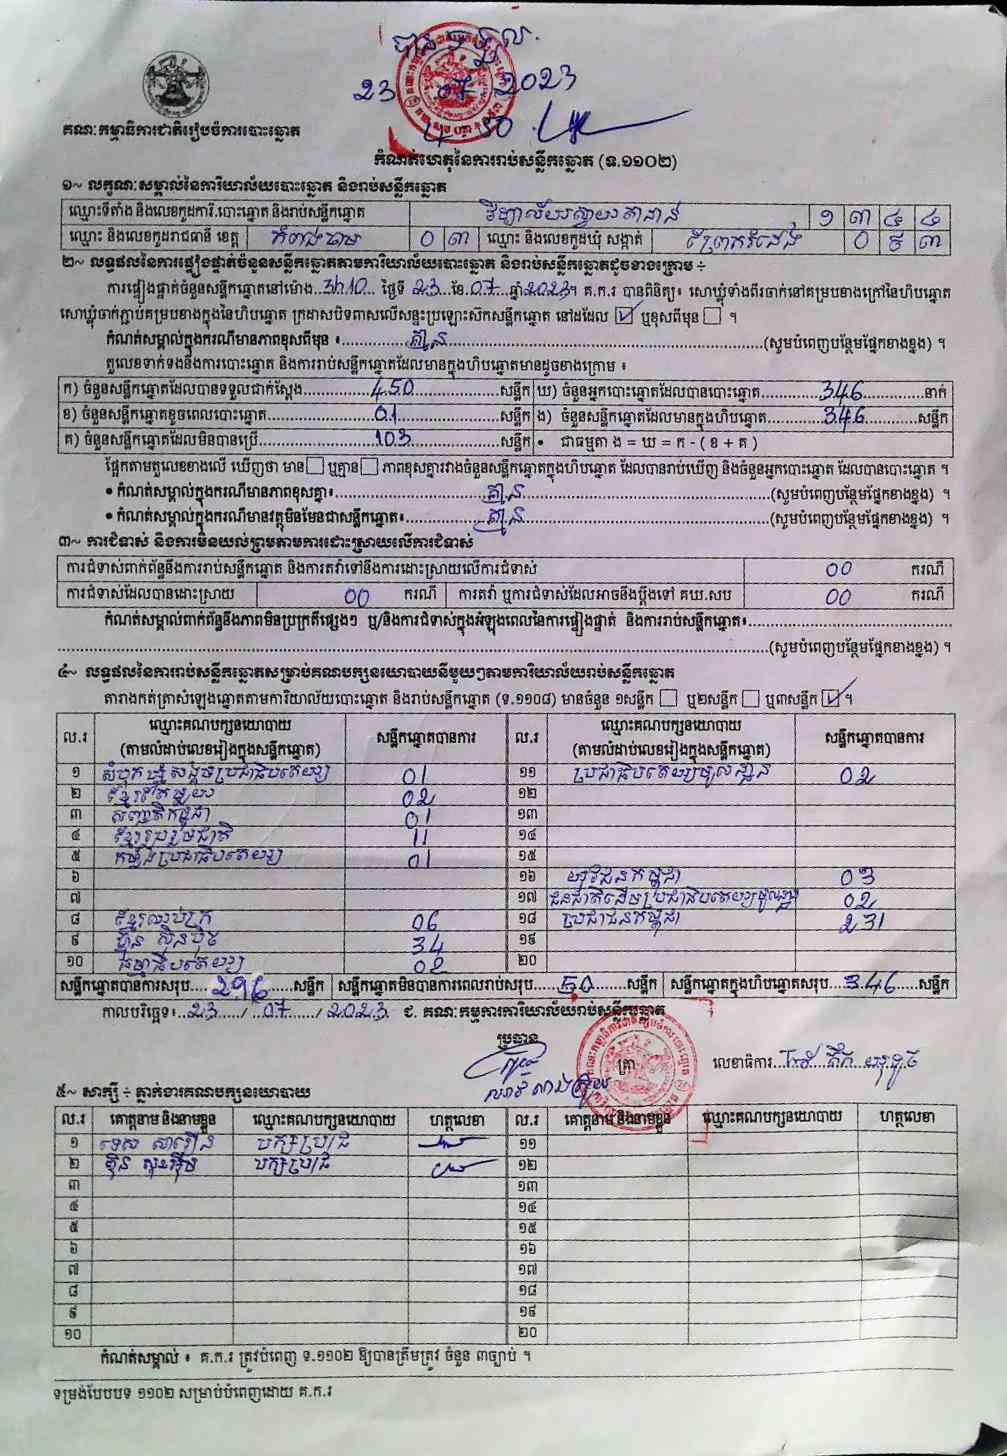 បានចម្លង
23 07 2023
4 50
គណៈកម្មាធិការជាតិរៀបចំការបោះឆ្នោត
កំណត់ហេតុនៃការរាប់សន្លឹកឆ្នោត (ទ.១១០២)
១~ លក្ខណៈសម្គាល់នៃការិយាល័យបោះឆ្នោត និងរាប់សន្លឹកឆ្នោត
ឈ្មោះទីតាំង និងលេខកូដការិ.បោះឆ្នោត និងរាប់សន្លឹកឆ្នោត វិទ្យាល័យស្វាយតានាន់ ១ ៣ ៤ ៤
ឈ្មោះ និងលេខកូដរាជធានី ខេត្ត កំពង់ចាម 0 ៣ ឈ្មោះ និងលេខកូដឃុំ សង្កាត់ ព្រែករំដេង 0 ៥ ៣
២~ លទ្ធផលនៃការផ្ទៀងផ្ទាត់ចំនួនសន្លឹកឆ្នោតតាមការិយាល័យបោះឆ្នោត និងរាប់សន្លឹកឆ្នោតដូចខាងក្រោម ÷
ការផ្ទៀងផ្ទាត់ចំនួនសន្លឹកឆ្នោតនៅម៉ោង...3h10... ថ្ងៃទី 23 ខែ.07. ឆ្នាំ2023។ គ.ក.រ បានពិនិត្យ៖ សោឃ្លុំទាំងពីរចាក់នៅគម្របខាងក្រៅនៃហិបឆ្នោត
សោឃ្លុំចាក់ភ្ជាប់គម្របខាងក្នុងនៃហិបឆ្នោត ក្រដាសបិទពាសលើសន្ទះប្រឡោះសឹកសន្លឹកឆ្នោត នៅដដែល ☑ ឬខុសពីមុន ☐ ។
កំណត់សម្គាល់ក្នុងករណីមានភាពខុសពីមុន ៖ គ្មាន (សូមបំពេញបន្ថែមផ្នែកខាងខ្នង) ។
តួលេខទាក់ទងនឹងការបោះឆ្នោត និងការរាប់សន្លឹកឆ្នោតដែលមានក្នុងហិបឆ្នោតមានដូចខាងក្រោម ៖
ក) ចំនួនសន្លឹកឆ្នោតដែលបានទទួលជាក់ស្តែង 450 សន្លឹក ឃ) ចំនួនអ្នកបោះឆ្នោតដែលបានបោះឆ្នោត 346 នាក់
ខ) ចំនួនសន្លឹកឆ្នោតខូចពេលបោះឆ្នោត 01 សន្លឹក ង) ចំនួនសន្លឹកឆ្នោតដែលមានក្នុងហិបឆ្នោត 346 សន្លឹក
គ) ចំនួនសន្លឹកឆ្នោតដែលមិនបានប្រើ 103 សន្លឹក • ជាធម្មតា ង = ឃ = ក - ( ខ + គ )
ផ្អែកតាមតួលេខខាងលើ ឃើញថា មាន ☐ ឬគ្មាន ☐ ភាពខុសគ្នារវាងចំនួនសន្លឹកឆ្នោតក្នុងហិបឆ្នោត ដែលបានរាប់ឃើញ និងចំនួនអ្នកបោះឆ្នោត ដែលបានបោះឆ្នោត ។
• កំណត់សម្គាល់ក្នុងករណីមានភាពខុសគ្នា៖ គ្មាន (សូមបំពេញបន្ថែមផ្នែកខាងខ្នង) ។
• កំណត់សម្គាល់ក្នុងករណីមានវត្ថុមិនមែនជាសន្លឹកឆ្នោត៖ គ្មាន (សូមបំពេញបន្ថែមផ្នែកខាងខ្នង) ។
៣~ ការជំទាស់ និងការមិនយល់ព្រមតាមការដោះស្រាយលើការជំទាស់
ការជំទាស់ពាក់ព័ន្ធនឹងការរាប់សន្លឹកឆ្នោត និងការតវ៉ាទៅនឹងការដោះស្រាយលើការជំទាស់ 00 ករណី
ការជំទាស់ដែលបានដោះស្រាយ 00 ករណី ការតវ៉ា ឬការជំទាស់ដែលអាចនឹងប្តឹងទៅ គឃ.សប 00 ករណី
កំណត់សម្គាល់ពាក់ព័ន្ធនឹងភាពមិនប្រក្រតីផ្សេងៗ ឬ/និងការជំទាស់ក្នុងអំឡុងពេលនៃការផ្ទៀងផ្ទាត់ និងការរាប់សន្លឹកឆ្នោត៖
(សូមបំពេញបន្ថែមផ្នែកខាងខ្នង) ។
៤~ លទ្ធផលនៃការរាប់សន្លឹកឆ្នោតសម្រាប់គណបក្សនយោបាយនីមួយៗតាមការិយាល័យរាប់សន្លឹកឆ្នោត
តារាងកត់ត្រាសំឡេងឆ្នោតតាមការិយាល័យបោះឆ្នោត និងរាប់សន្លឹកឆ្នោត (ទ.១១០៨) មានចំនួន ១សន្លឹក ☐ ឬ២សន្លឹក ☐ ឬ៣សន្លឹក ☑ ។
ល.រ ឈ្មោះគណបក្សនយោបាយ (តាមលំដាប់លេខរៀងក្នុងសន្លឹកឆ្នោត) សន្លឹកឆ្នោតបានការ ល.រ ឈ្មោះគណបក្សនយោបាយ (តាមលំដាប់លេខរៀងក្នុងសន្លឹកឆ្នោត) សន្លឹកឆ្នោតបានការ
១ សំបុកឃ្មុំសង្គមប្រជាធិបតេយ្យ 01 ១១ ប្រជាធិបតេយ្យមូលដ្ឋាន 02
២ ខ្មែរតែមួយ 02 ១២
៣ សញ្ជាតិកម្ពុជា 01 ១៣
៤ ខ្មែររួបរួមជាតិ 11 ១៤
៥ កម្លាំងប្រជាធិបតេយ្យ 01 ១៥
៦ ១៦ យុវជនកម្ពុជា 03
៧ ១៧ ជនជាតិដើមប្រជាធិបតេយ្យកម្ពុជា 02
៨ ខ្មែរឈប់ក្រ 06 ១៨ ប្រជាជនកម្ពុជា 231
៩ ហ្វ៊ុនស៊ិនប៉ិច 34 ១៩
១០ ធម្មាធិបតេយ្យ 02 ២០
សន្លឹកឆ្នោតបានការសរុប 296 សន្លឹក សន្លឹកឆ្នោតមិនបានការពេលរាប់សរុប 50 សន្លឹក សន្លឹកឆ្នោតក្នុងហិបឆ្នោតសរុប 346 សន្លឹក
កាលបរិច្ឆេទ៖ 23 / 07 / 2023 ជ. គណៈកម្មការការិយាល័យរាប់សន្លឹកឆ្នោត
ប្រធាន
ត្រា លេខាធិការ
៥~ សាក្សី ÷ ភ្នាក់ងារគណបក្សនយោបាយ
ល.រ គោត្តនាម និងនាមខ្លួន ឈ្មោះគណបក្សនយោបាយ ហត្ថលេខា ល.រ គោត្តនាម និងនាមខ្លួន ឈ្មោះគណបក្សនយោបាយ ហត្ថលេខា
១ ទេស សារឿន បក្សប្រ/ជ ១១
២ បក្សប្រ/ជ ១២
៣ ១៣
៤ ១៤
៥ ១៥
៦ ១៦
៧ ១៧
៨ ១៨
៩ ១៩
១០ ២០
កំណត់សម្គាល់ ៖ គ.ក.រ ត្រូវបំពេញ ទ.១១០២ ឱ្យបានត្រឹមត្រូវ ចំនួន ៣ច្បាប់ ។
ទម្រង់បែបបទ ១១០២ សម្រាប់បំពេញដោយ គ.ក.រ